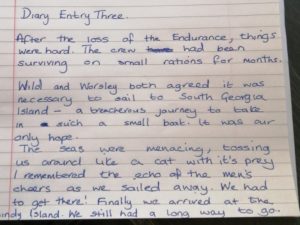 Diary Entry Three.
After the loss of the Endurance, things
were hard. The crew had been
surviving on small rations for months.
Wild and Worsley both agreed it was
necessary to sail to South Georgia
Island - a treacherous journey to take
in such a small boat. It was our
only hope.
The seas were menacing, tossing
us around like a cat with it's prey
I remembered the echo of the men's
cheers as we sailed away. We had
to get there! Finally we arrived at the
Island. We still had a long way to go.